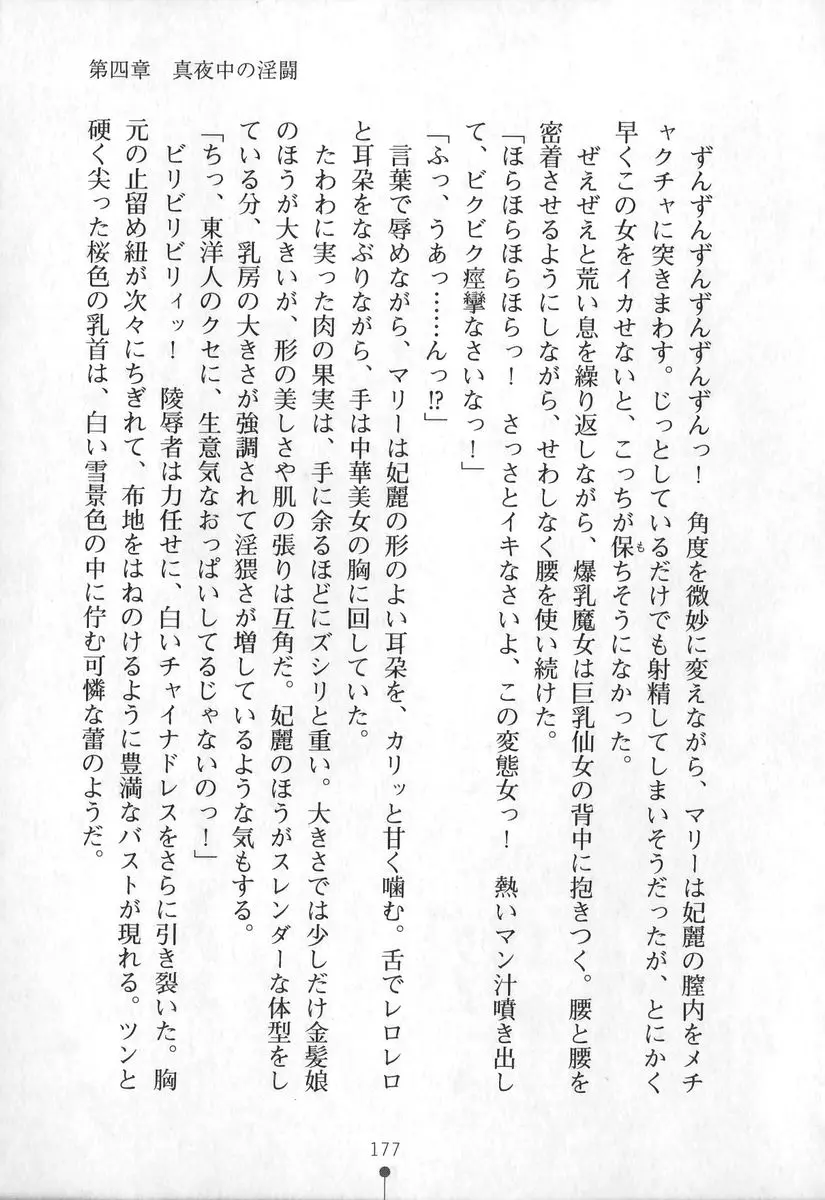 第四章　真夜中の淫闘
　ずんずんずんずんずんずんっ！　角度を微妙に変えながら、マリーは妃麗の膣内をメチ
ャクチャに突きまわす。じっとしているだけでも射精してしまいそうだったが、とにかく
早くこの女をイカせないと、こっちが保ちそうになかった。
も
　ぜえぜえと荒い息を繰り返しながら、爆乳魔女は巨乳仙女の背中に抱きつく。腰と腰を
密着させるようにしながら、せわしなく腰を使い続けた。
「ほらほらほらほらっ！　さっさとイキなさいよ、この変態女っ！　熱いマン汁噴き出し
て、ビクビク痙攣なさいなっ！」
「ふっ、うあっ……んっ!?」
　言葉で辱めながら、マリーは妃麗の形のよい耳朶を、カリッと甘く噛む。舌でレロレロ
と耳朶をなぶりながら、手は中華美女の胸に回していた。
　たわわに実った肉の果実は、手に余るほどにズシリと重い。大きさでは少しだけ金髪娘
のほうが大きいが、形の美しさや肌の張りは互角だ。妃麗のほうがスレンダーな体型をし
ている分、乳房の大きさが強調されて淫猥さが増しているような気もする。
「ちっ、東洋人のクセに、生意気なおっぱいしてるじゃないのっ！」
　ビリビリビリィッ！　陵辱者は力任せに、白いチャイナドレスをさらに引き裂いた。胸
元の止留め紐が次々にちぎれて、布地をはねのけるように豊満なバストが現れる。ツンと
硬く尖った桜色の乳首は、白い雪景色の中に佇む可憐な蕾のようだ。
177